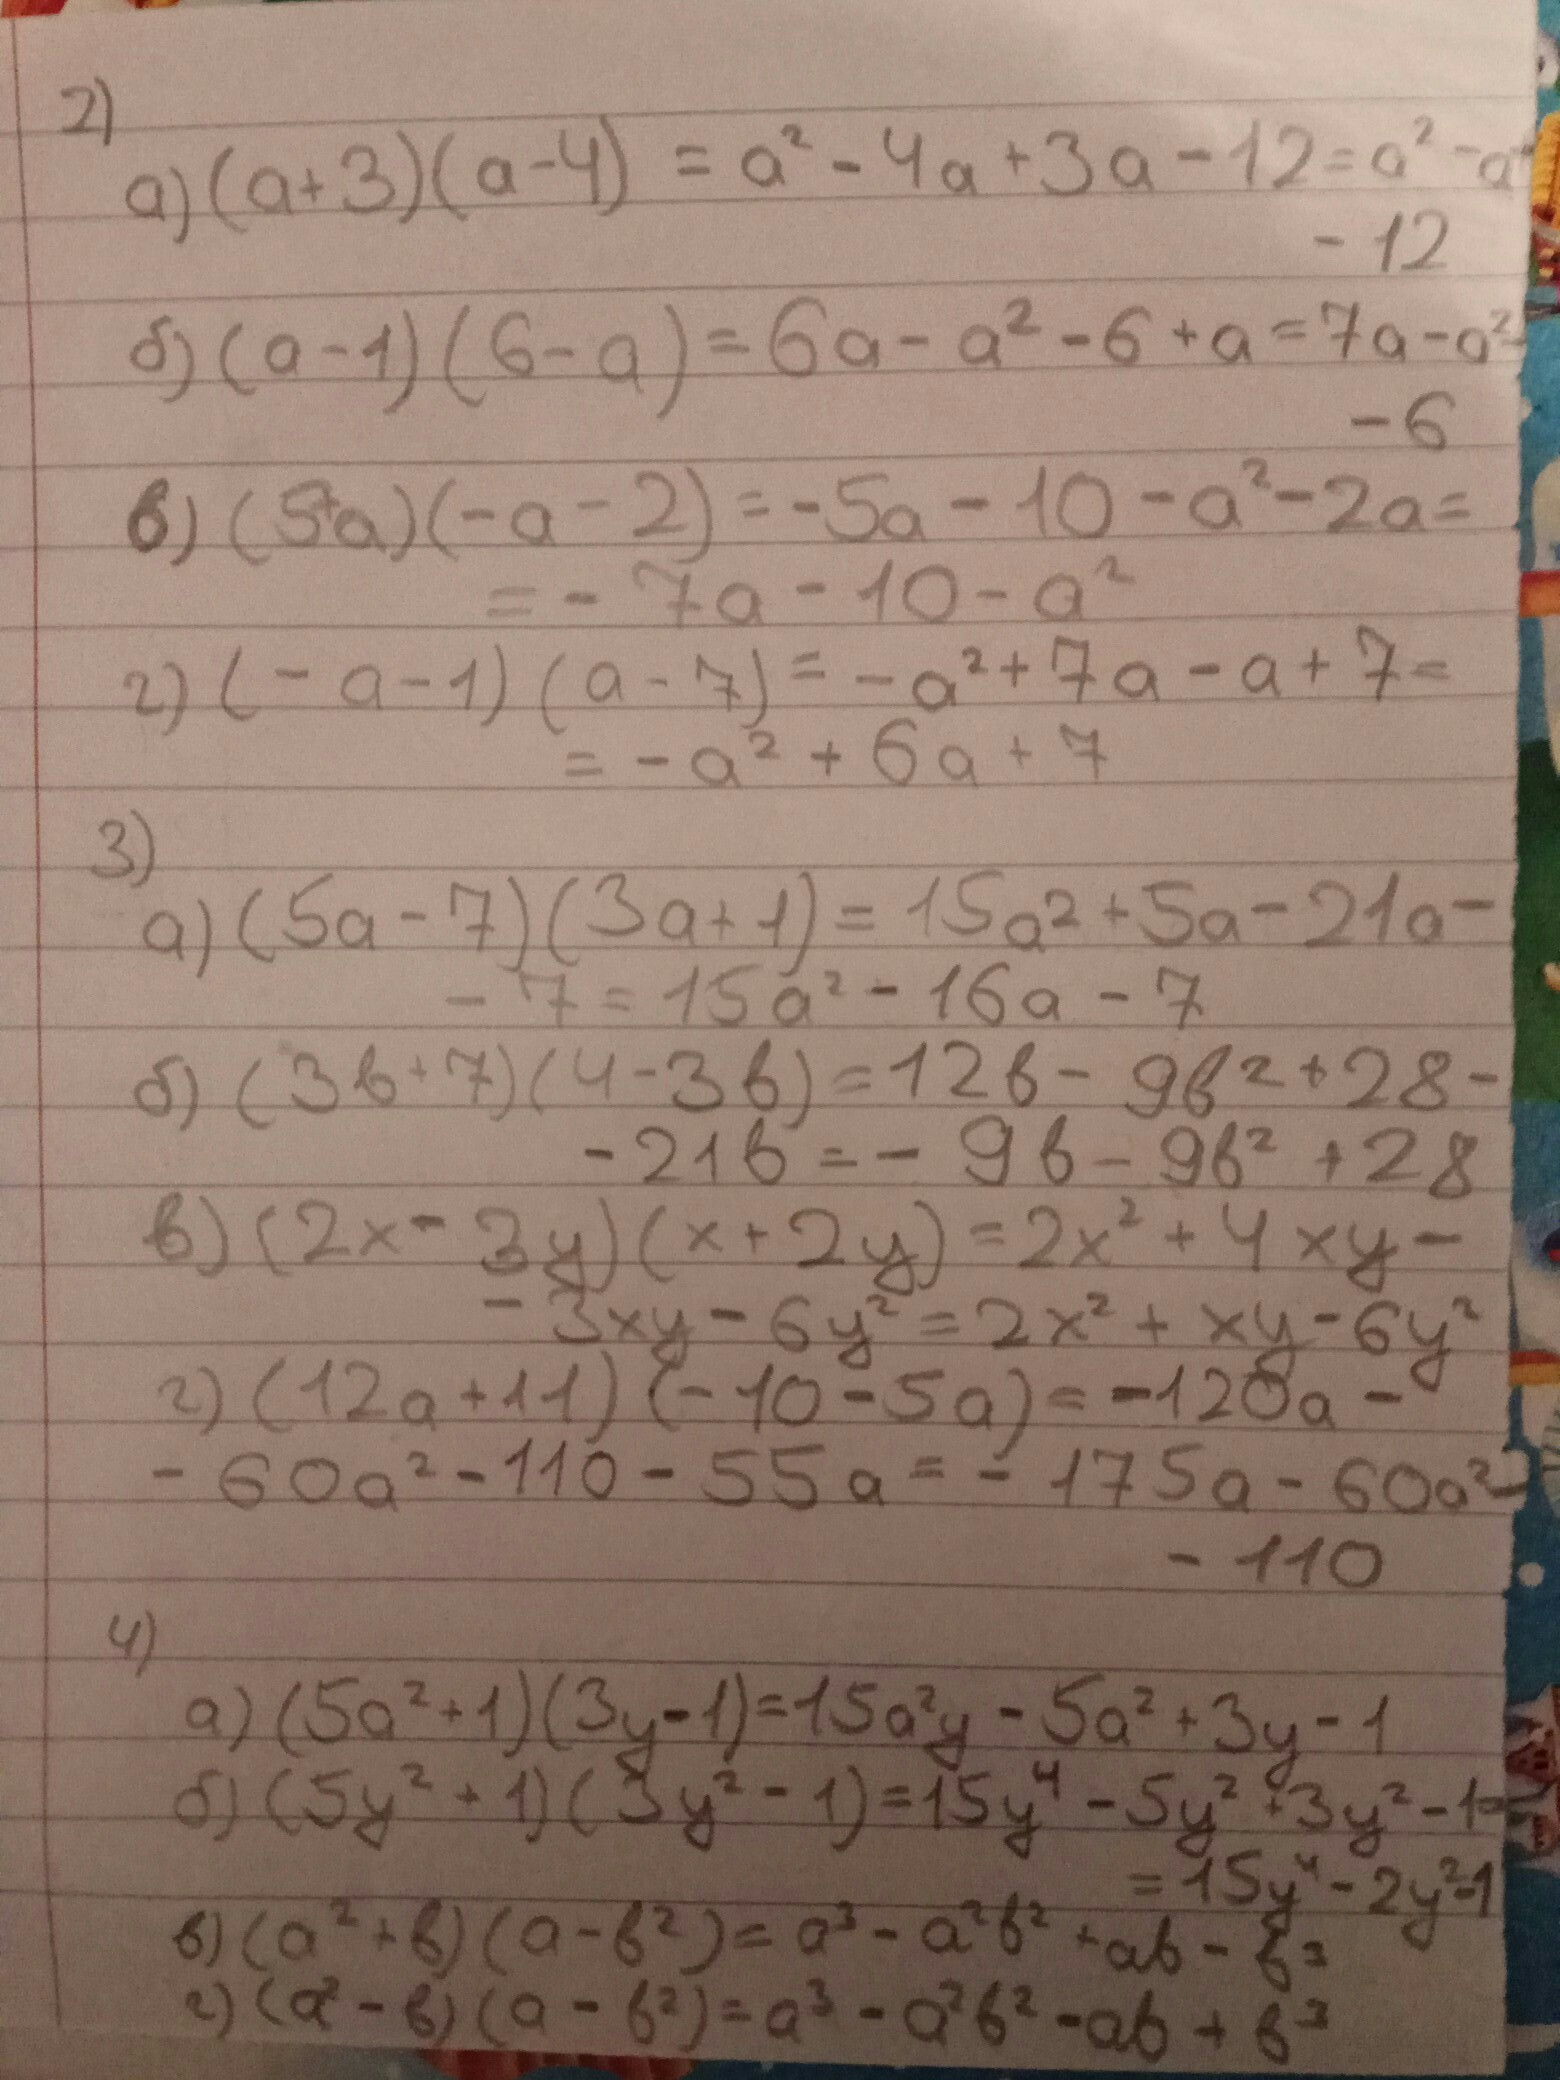 2)
а) (a+3)(a-4) = a² - 4a + 3a - 12 = a² - a -
- 12
б) (a-1)(6-a) = 6a - a² - 6 + a = 7a - a² -
- 6
в) (5+a)(-a-2) = -5a - 10 - a² - 2a =
= - 7a - 10 - a²
г) (-a-1)(a-7) = -a² + 7a - a + 7 =
= -a² + 6a + 7
3)
а) (5a-7)(3a+1) = 15a² + 5a - 21a -
- 7 = 15a² - 16a - 7
б) (3b+7)(4-3b) = 12b - 9b² + 28 -
- 21b = - 9b - 9b² + 28
в) (2x - 3y)(x + 2y) = 2x² + 4xy -
- 3xy - 6y² = 2x² + xy - 6y²
г) (12a+11)(-10-5a) = -120a -
- 60a² - 110 - 55a = - 175a - 60a² -
- 110
4)
а) (5a²+1)(3y-1) = 15a²y - 5a² + 3y - 1
б) (5y²+1)(3y²-1) = 15y⁴ - 5y² + 3y² - 1 =
= 15y⁴ - 2y² - 1
в) (a²+b)(a-b²) = a³ - a²b² + ab - b³
г) (a²-b)(a-b²) = a³ - a²b² - ab + b³